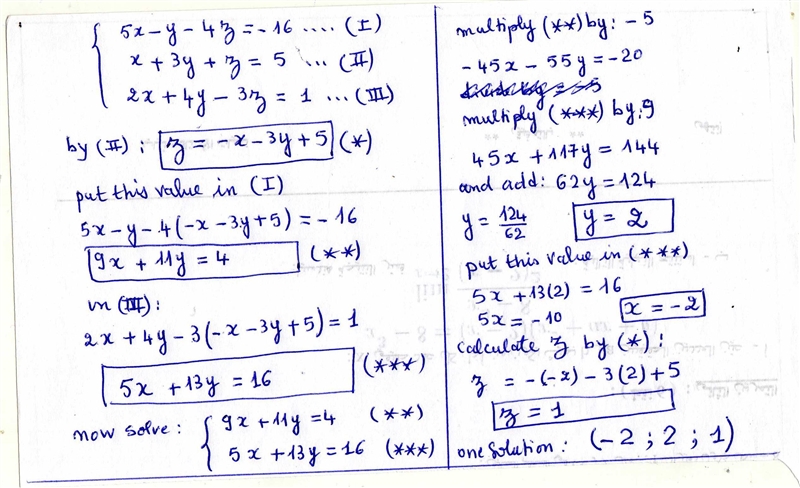 5x - y - 4z = -16 .... (I)
x + 3y + z = 5 ... (II)
2x + 4y - 3z = 1 ... (III)
by (II) : z = -x - 3y + 5 (*)
put this value in (I)
5x - y - 4(-x - 3y + 5) = -16
9x + 11y = 4 (**)
in (III) :
2x + 4y - 3(-x - 3y + 5) = 1
5x + 13y = 16 (***)
now solve : 9x + 11y = 4 (**)
5x + 13y = 16 (***)
multiply (**) by : -5
-45x - 55y = -20
multiply (***) by : 9
45x + 117y = 144
and add : 62y = 124
y = 124/62 y = 2
put this value in (***)
5x + 13(2) = 16
5x = -10 x = -2
calculate z by (*) :
z = -(-2) - 3(2) + 5
z = 1
one solution : (-2 ; 2 ; 1)